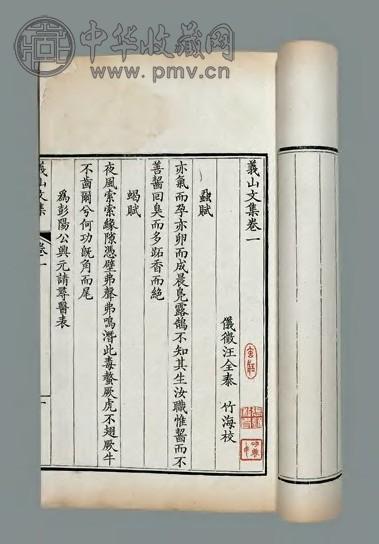 中华收藏网
www.pmv.cn
義山文集卷一
儀徵汪全泰 竹海校
蝨賦
亦氣而孕亦卵而成晨鳧露鵠不知其生汝職惟齧而不
善齧回臭而多跖香而絕
蝎賦
夜風索索緣隙憑壁弗聲弗鳴潛此毒螫厥虎不翅厥牛
不齒爾兮何功既角而尾
為彭陽公興元請尋醫表
義山文集
卷一
一